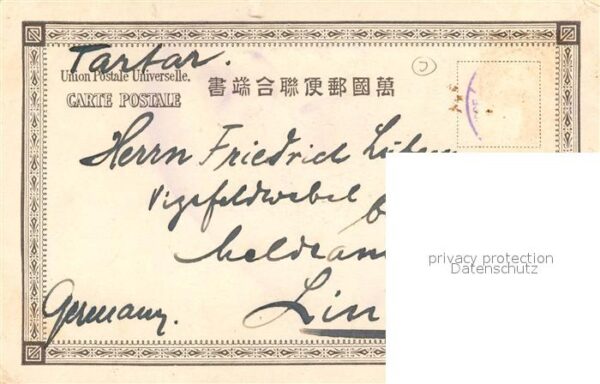 Tartar.
Union Postale Universelle.
CARTE POSTALE
書端合聯便郵國萬
Herrn Friedrich
Vizefeldwebel
Lin
Germany.
privacy protection
Datenschutz